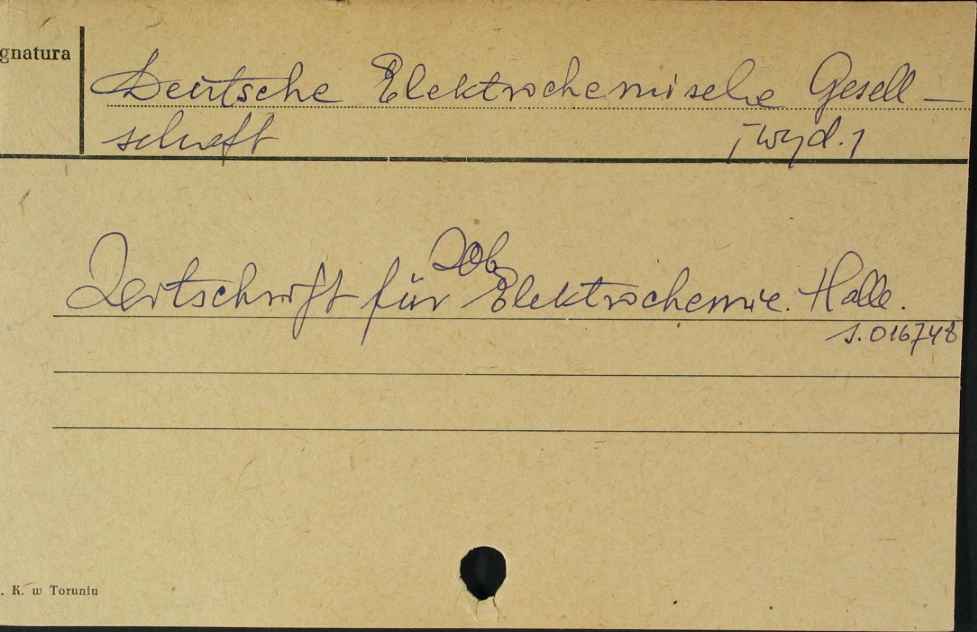 gnatura
Deutsche Elektrochemische Gesell-
schaft [wyd.]
Zob.
Zeitschrift für Elektrochemie. Halle.
s. 016748
. K. w Toruniu